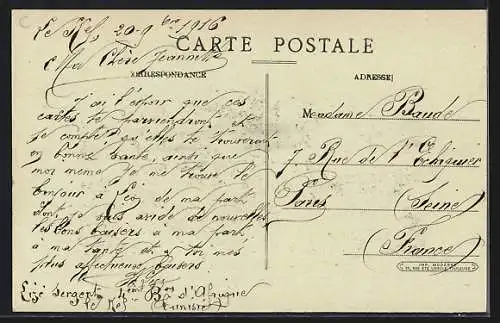 Le Kef, 20-9bre 1916
CARTE POSTALE
Ma Chère Jeannette
CORRESPONDANCE
ADRESSE
J'ai l'espoir que ces
cartes te parviendront et je
compte qu'elles te trouveront
en bonne santé, ainsi que
moi même je me trouve. le
bonjour à Léon de ma part
dont je suis avide de nouvelles
les bons baisers à ma part,
à ma tante et à toi mes
plus affectueux baisers
Sergent
Bon d'Afrique
le Kef (Tunisie)
Madame Baude
7, Rue de l'Echiquier
Paris (Seine)
(France)